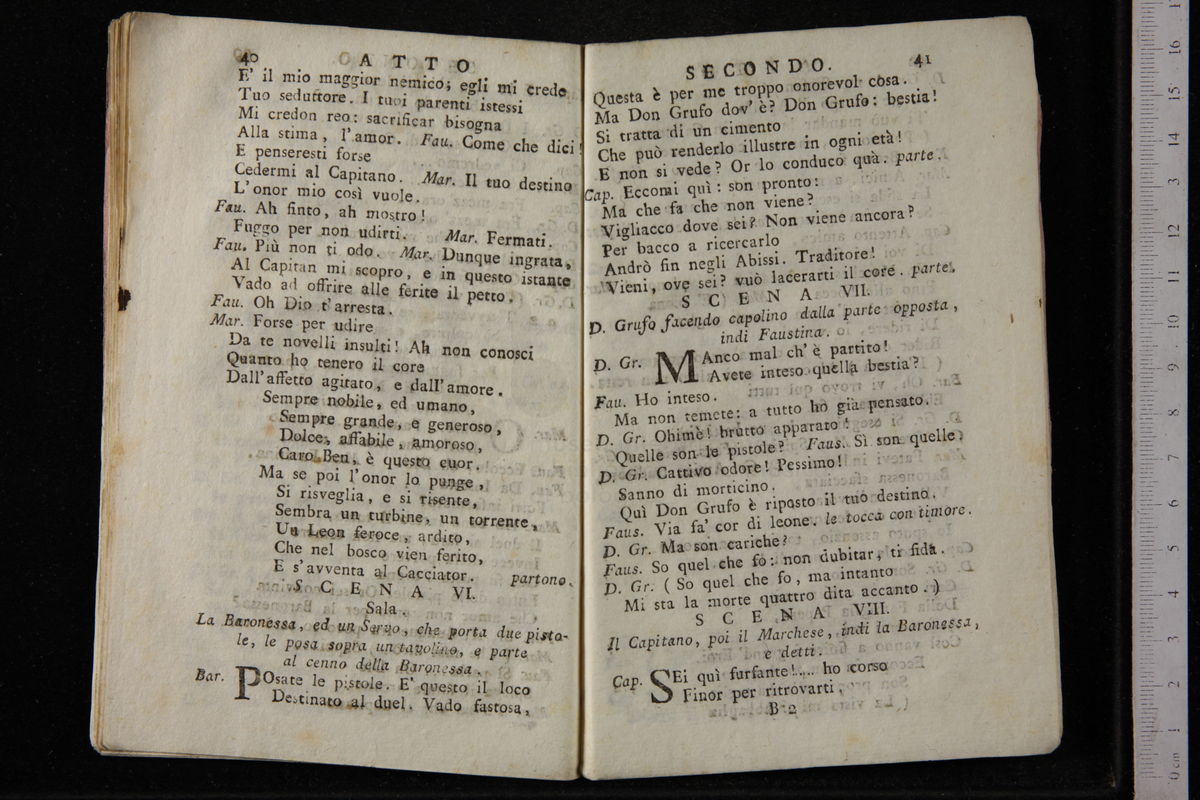 40 ATTO
E' il mio maggior nemico; egli mi crede
Tuo seduttore. I tuoi parenti istessi
Mi credon reo: sacrificar bisogna
Alla stima, l'amor. Fau. Come che dici!
E penseresti forse
Cedermi al Capitano. Mar. Il tuo destino
L'onor mio così vuole.
Fau. Ah finto, ah mostro!
Fuggo per non udirti. Mar. Fermati.
Fau. Più non ti odo. Mar. Dunque ingrata,
Al Capitan mi scopro, e in questo istante
Vado ad offrire alle ferite il petto.
Fau. Oh Dio t'arresta.
Mar. Forse per udire
Da te novelli insulti! Ah non conosci
Quanto ho tenero il core
Dall'affetto agitato, e dall'amore.
Sempre nobile, ed umano,
Sempre grande, e generoso,
Dolce, affabile, amoroso,
Caro Ben, è questo cuor.
Ma se poi l'onor lo punge,
Si risveglia, e si risente,
Sembra un turbine, un torrente,
Un Leon feroce, ardito,
Che nel bosco vien ferito,
E s'avventa al Cacciator. partono.
SCENA VI.
Sala.
La Baronessa, ed un Servo, che porta due pisto-
le, le posa sopra un tavolino, e parte
al cenno della Baronessa.
Bar. POsate le pistole. E' questo il loco
Destinato al duel. Vado fastosa,
SECONDO. 41
Questa è per me troppo onorevol cosa.
Ma Don Grufo dov'è? Don Grufo: bestia!
Si tratta di un cimento
Che può renderlo illustre in ogni età!
E non si vede? Or lo conduco quà. parte.
Cap. Eccomi quì: son pronto:
Ma che fa che non viene?
Vigliacco dove sei? Non viene ancora?
Per bacco a ricercarlo
Andrò fin negli Abissi. Traditore!
Vieni, ove sei? vuò lacerarti il core. parte.
SCENA VII.
D. Grufo facendo capolino dalla parte opposta,
indi Faustina.
D. Gr. MAnco mal ch'è partito!
Avete inteso quella bestia?
Fau. Ho inteso.
Ma non temete: a tutto hò già pensato.
D. Gr. Ohimè! brutto apparato!
Quelle son le pistole? Faus. Sì son quelle.
D. Gr. Cattivo odore! Pessimo!
Sanno di morticino.
Quì Don Grufo è riposto il tuo destino.
Faus. Via fa' cor di leone. le tocca con timore.
D. Gr. Ma son cariche?
Faus. So quel che fo: non dubitar, ti fida.
D. Gr. (So quel che fo, ma intanto
Mi sta la morte quattro dita accanto.)
SCENA VIII.
Il Capitano, poi il Marchese, indi la Baronessa,
e detti.
Cap. SEi quì furfante!.... ho corso
Finor per ritrovarti,
B 2
0 cm 1 2 3 4 5 6 7 8 9 10 11 12 13 14 15 16 17